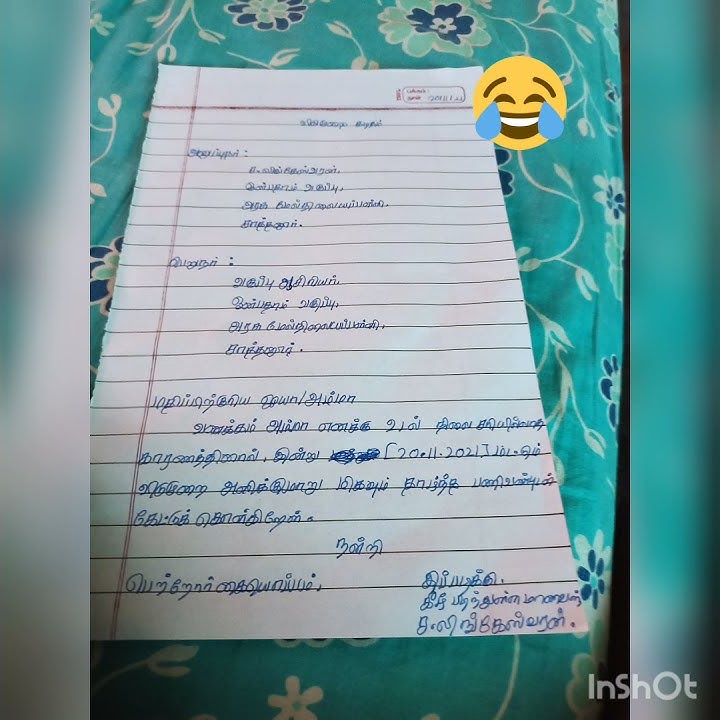 பக்கம் :
நாள் :
விடுமுறை கடிதம்
அனுப்புநர் :
ச.லிங்கேஸ்வரன்,
ஒன்பதாம் வகுப்பு,
அரசு மேல்நிலைப்பள்ளி,
சாத்தனூர்.
பெறுநர் :
வகுப்பு ஆசிரியர்,
ஒன்பதாம் வகுப்பு,
அரசு மேல்நிலைப்பள்ளி,
சாத்தனூர்.
மதிப்பிற்குரிய ஐயா/அம்மா
வணக்கம் அம்மா எனக்கு உடல் நிலை சரியில்லாத
காரணத்தினால், இன்று [20.11.2021] மட்டும்
விடுமுறை அளிக்குமாறு மிகவும் தாழ்ந்த பணிவுடன்
கேட்டுக் கொள்கிறேன்.
நன்றி
பெற்றோர் கையொப்பம்.
இப்படிக்கு,
கீழ் படிந்துள்ள மாணவன்
ச.லிங்கேஸ்வரன்.
InShOt